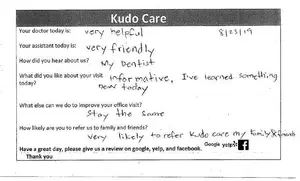 Kudo Care
Your doctor today is: very helpful 8/23/19
Your assistant today is: very friendly
How did you hear about us? My Dentist
What did you like about your visit today? informative, I've learned something
new today
What else can we do to improve your office visit?
Stay the same
How likely are you to refer us to family and friends?
very likely to refer Kudo care my family & friends
Have a great day, please give us a review on google, yelp, and facebook. Google yelp f
Thank you